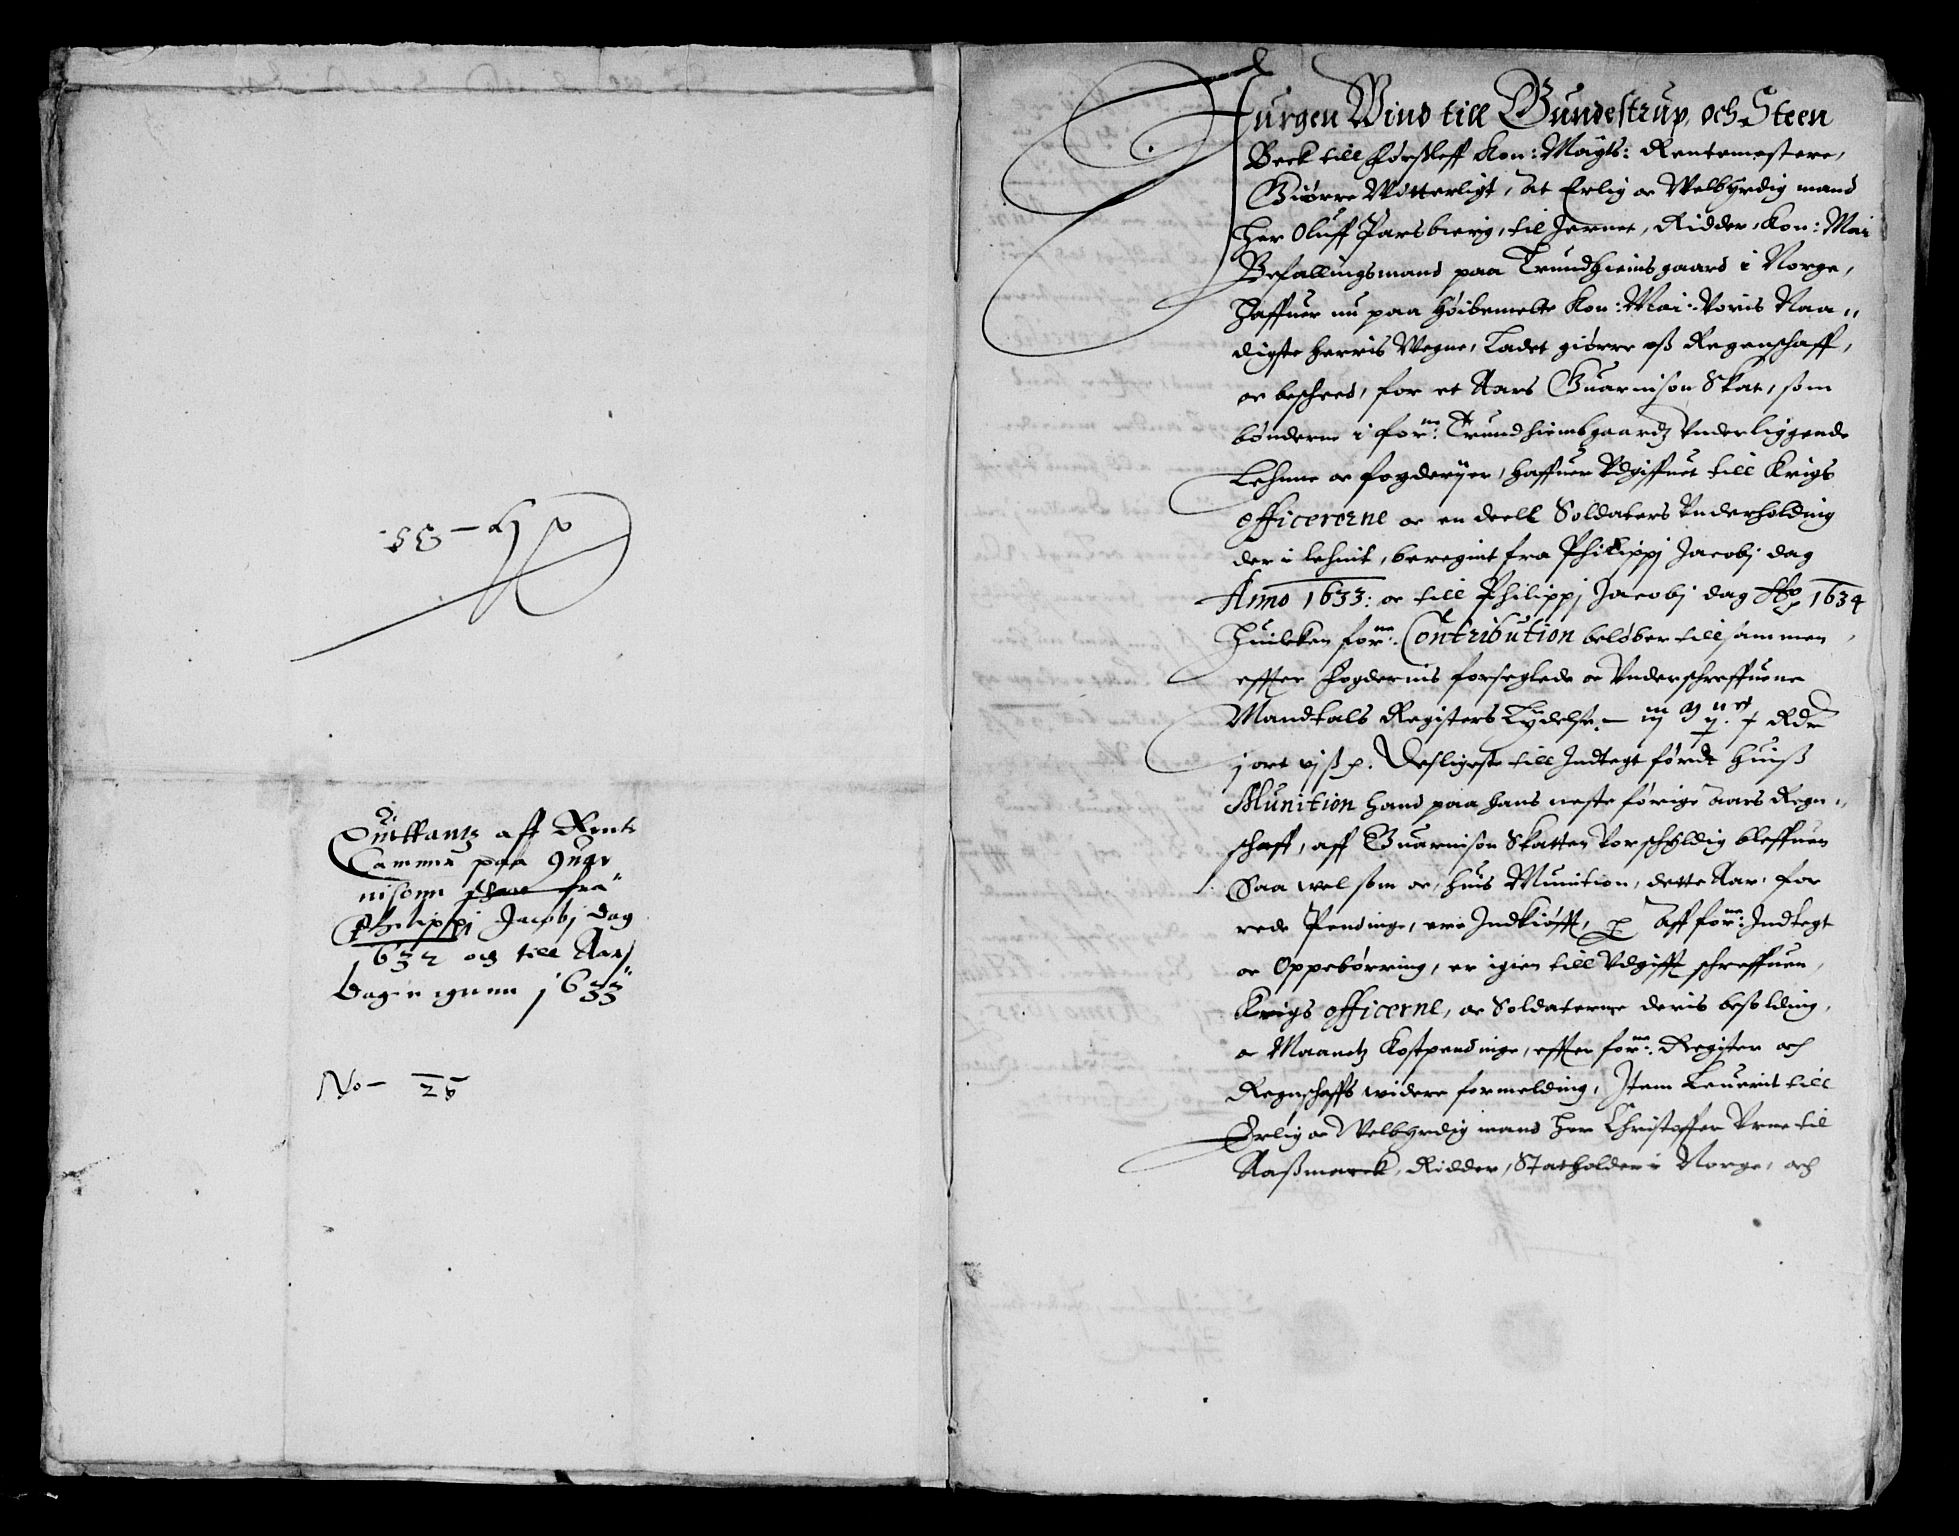 Quittantz aff Rente
Cammer paa Guar
nisonn skat fra
Philippj Jacobj dag
1632 och till Aars
dagen igienn 1633
No 26
Jurgen Wind till Gundestrup, och Steen
Beck till Førsleff Kon: Maytts: Rentemestere,
Giørre Witterligt, At Erlig oc Welbyrdig mand
Her Oluff Parsbierg, til Jernet, Ridder, Kon: Mai
Befallingsmand paa Trundhiems gaard i Norge,
Haffuer nu paa Høibemelte Kon: Mai: Voris Naa„
digste Herris Wegne, Ladet giørre oss Regenschaff,
oc bescheed, for et Aars Guarnison Skat, som
bønderne i forne: Trundhiembsgaardz Vnderliggende
Lehnne oc fogderijer, haffuer Vdgiffuet till Krigs
officererne oc en deell Soldaters Vnderholding
der i Lehnit, beregnit fra Philippj Jacobj dag
Anno 1633: oc till Philippj Jacobj dag Ao 1634
Huilcken forne: Contribution beløber till sammen
effter Fogdernis forseglede oc Vnderschreffuene
Mandtals Registers Lydelse
j ort vjß. Desligeste till Indtegt førdt Huiß
Munition hand paa hans neste førige Aars Regn„
schaff, aff Guarnison Skatten Vorschyldig bleffuen
Saa wel som oc, huis Munition, dette Aar, for
rede Pendinge, ere Indkiøfft, aff forne: Indtegt
oc Oppebørring, er igien till Vdgifft schreffuen
Krigs officerne, oc Soldaterne deris besolding,
oc Maanetz Kostpendinge, effter forne: Register och
Regnschaffs widere formelding, Item Leuerit till
Erlig oc Welbyrdig mand Her Christoffer Vrne til
Aaßmarck, Ridder, Statholder i Norge, och